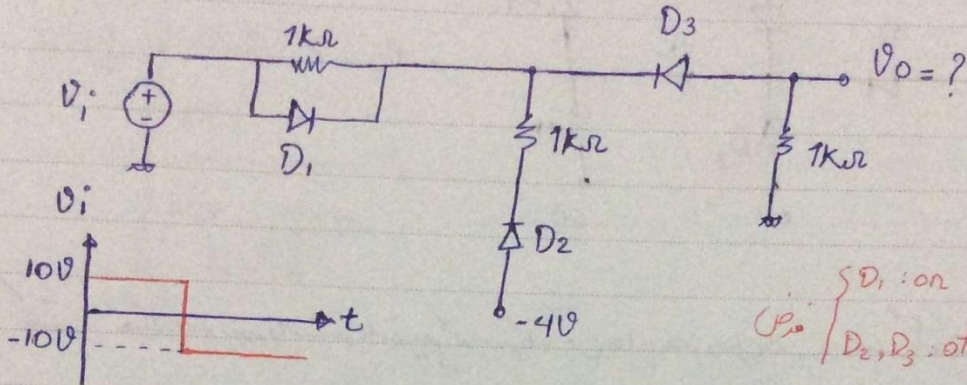 1kΩ
D3
Vo = ?
Vi
+
-
D1
1kΩ
1kΩ
D2
-4v
Vi
10v
-10v
t
فرض
D1 : on
D2, D3 : of